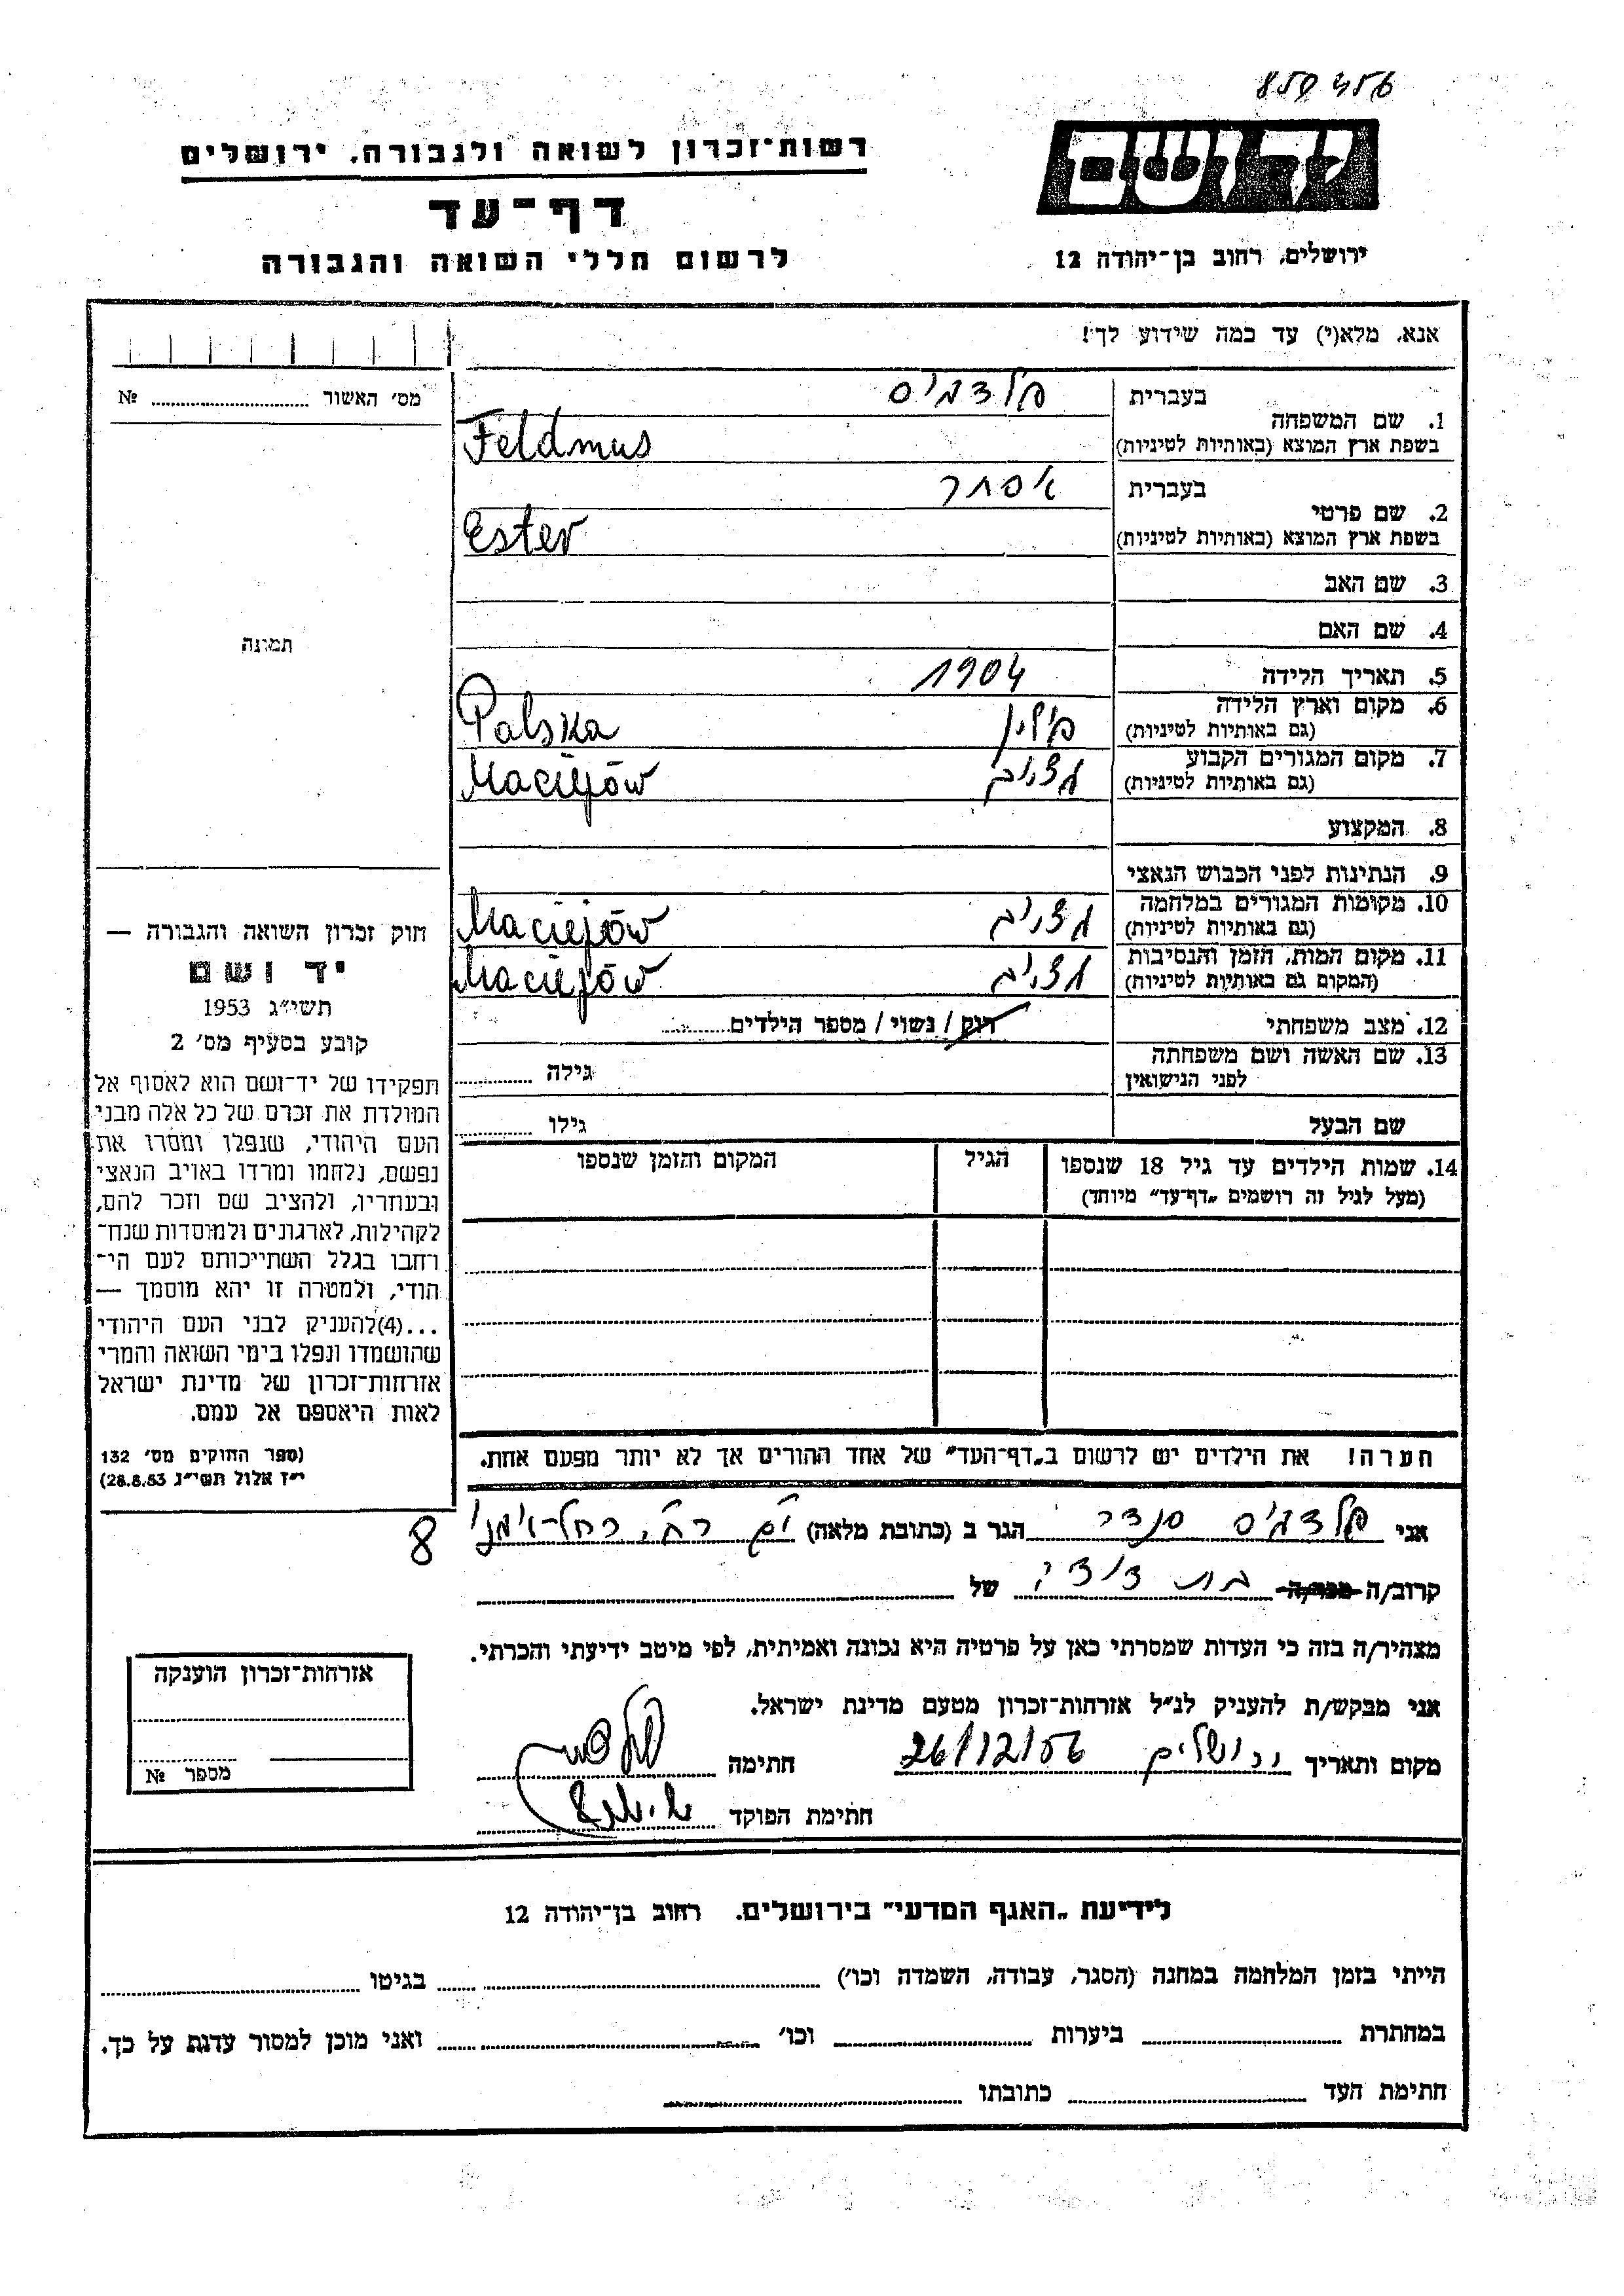 859 456
יד ושם
רשות־זכרון לשואה ולגבורה, ירושלים
דף־עד
ירושלים, רחוב בן־יהודה 12
לרשום חללי השואה והגבורה
אנא, מלא(י) עד כמה שידוע לך!
מס׳ האשור № 
בעברית פלדמוס
1. שם המשפחה
בשפת ארץ המוצא (באותיות לטיניות) Feldmus
בעברית אסתר
2. שם פרטי
בשפת ארץ המוצא (באותיות לטיניות) Ester
3. שם האב
4. שם האם
תמונה
5. תאריך הלידה 1904
6. מקום וארץ הלידה
(גם באותיות לטיניות) פולין Polska
7. מקום המגורים הקבוע
(גם באותיות לטיניות) Maciejów
8. המקצוע
9. הנתינות לפני הכבוש הנאצי
10. מקומות המגורים במלחמה
(גם באותיות לטיניות) Maciejów
11. מקום המות, הזמן והנסיבות
(המקום גם באותיות לטיניות) Maciejów
12. מצב משפחתי רוק / נשוי / מספר הילדים
13. שם האשה ושם משפחתה
לפני הנישואין גילה
שם הבעל גילו
14. שמות הילדים עד גיל 18 שנספו הגיל המקום והזמן שנספו
(מעל לגיל זה רושמים „דף־עד״ מיוחד)
חוק זכרון השואה והגבורה —
יד ושם
תשי״ג 1953
קובע בסעיף מס׳ 2
תפקידו של יד־ושם הוא לאסוף אל
המולדת את זכרם של כל אלה מבני
העם היהודי, שנפלו ומסרו את
נפשם, נלחמו ומרדו באויב הנאצי
ובעוזריו, ולהציב שם וזכר להם,
לקהילות, לארגונים ולמוסדות שנח־
רחבו בגלל השתייכותם לעם הי־
הודי, ולמטרה זו יהא מוסמך —
...(4)להעניק לבני העם היהודי
שהושמדו ונפלו בימי השואה והמרי
אזרחות־זכרון של מדינת ישראל
לאות היאספם אל עמם.
(ספר החוקים מס׳ 132
י״ז אלול תשי״ג 28.8.53)
הערה! את הילדים יש לרשום ב„דף־העד״ של אחד ההורים אך לא יותר מפעם אחת.
אני פלדמוס סנדר הגר ב (כתובת מלאה) רח׳ רחל אימנו 8
קרוב/ה מכר/ה בת דודי של
מצהיר/ה בזה כי העדות שמסרתי כאן על פרטיה היא נכונה ואמיתית, לפי מיטב ידיעתי והכרתי.
אני מבקש/ת להעניק לנ״ל אזרחות־זכרון מטעם מדינת ישראל.
מקום ותאריך ירושלים 26/12/56 חתימה
חתימת הפוקד
אזרחות־זכרון הוענקה
מספר №
לידיעת „האגף המדעי״ בירושלים. רחוב בן־יהודה 12
הייתי בזמן המלחמה במחנה (הסגר, עבודה, השמדה וכו׳) בגיטו
במחתרת ביערות וכו׳ ואני מוכן למסור עדות על כך.
חתימת העד כתובתו